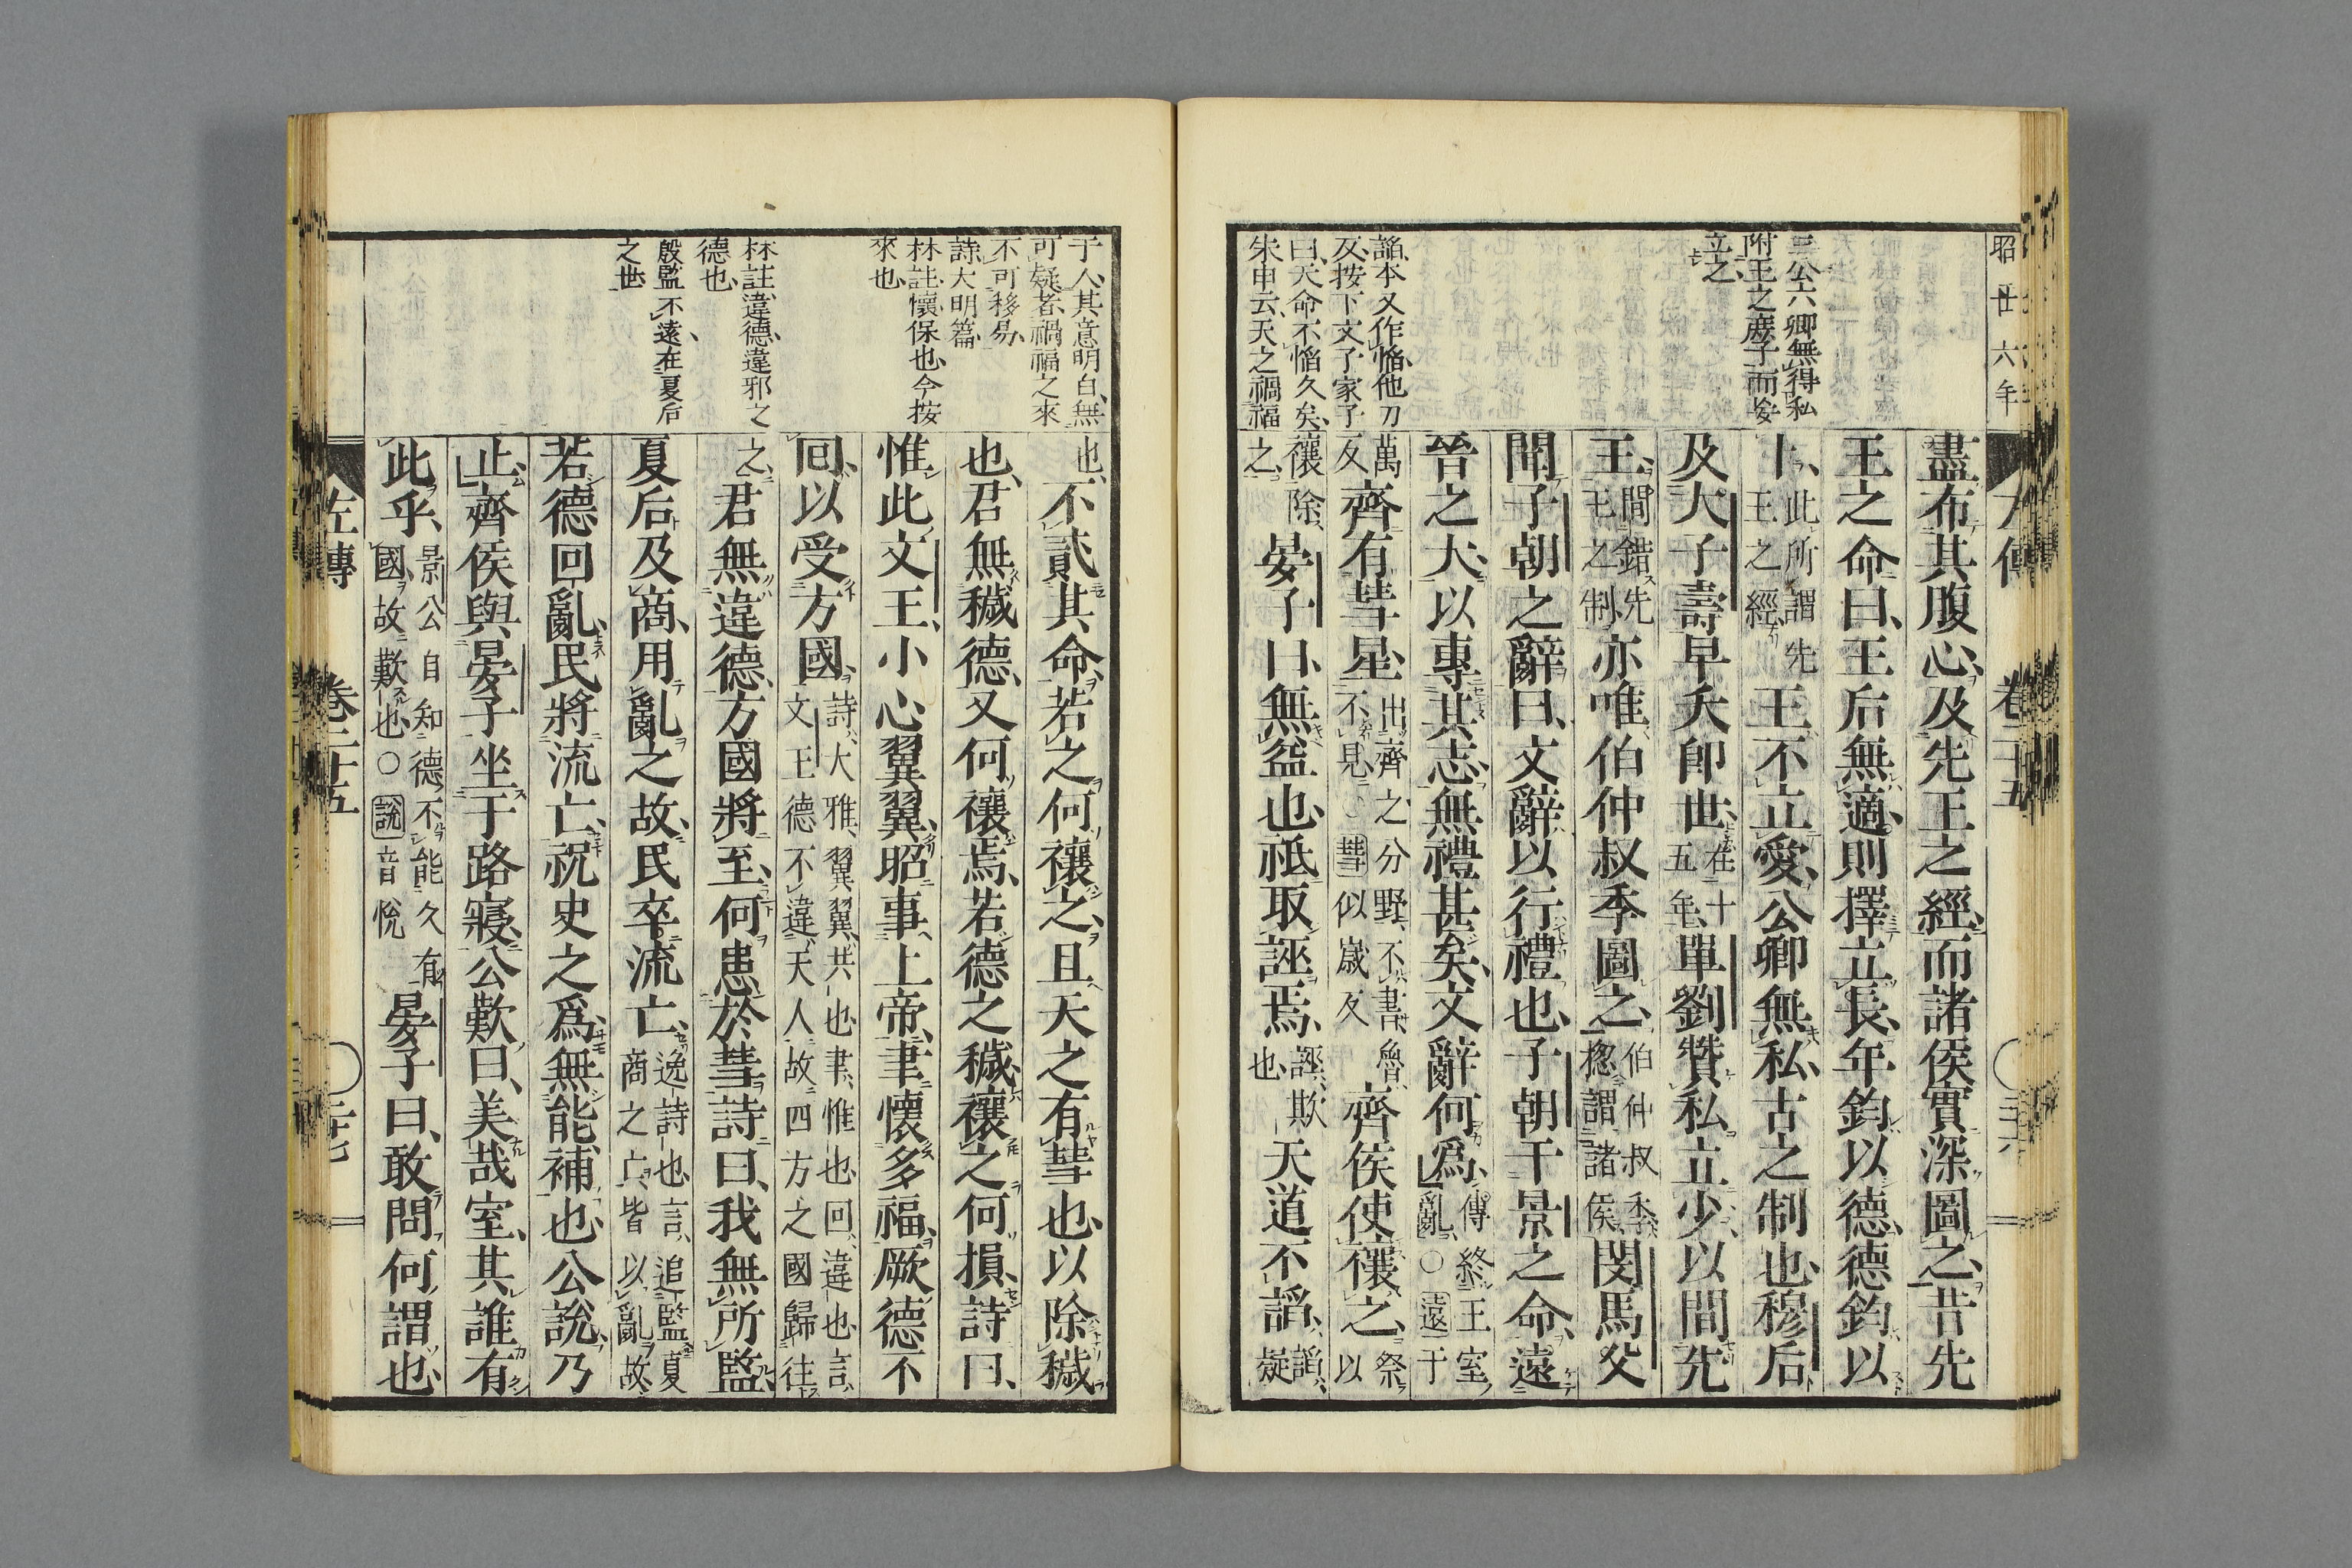 昭廿六年
三公六卿無得私
附王之庶子而妄
立之
謟本又作慆他刀
反按下文子家子
曰天命不慆久矣
朱申云天之禍福
盡布其腹心、及先王之經、而諸侯實深圖之、昔先
王之命曰、王后無適、則擇立長、年鈞以德、德鈞以
卜、此所謂先王之經、王不立愛、公卿無私、古之制也、穆后
及大子壽早夭卽世、在十五年、單劉贊私立少、以間先
王、間錯先王之制、亦唯伯仲叔季圖之、伯仲叔季揔謂諸侯、閔馬父
聞子朝之辭曰、文辭以行禮也、子朝干景之命、遠
晉之大、以專其志、無禮甚矣、文辭何爲、傳終王室亂、○遠于
萬反齊有彗星、出齊之分野、不書、魯不見、○彗似歲反齊侯使禳之、祭以
禳除之、晏子曰、無益也、祗取誣焉、誣、欺也、天道不謟、謟、疑
于人其意明白無
可疑者禍福之來
不可移易
詩大明篇
林註懷保也今按
來也
林註違德違邪之
德也
殷監不遠在夏后
之世
也、不貳其命、若之何禳之、且天之有彗也、以除穢
也、君無穢德、又何禳焉、若德之穢、禳之何損、詩曰、
惟此文王、小心翼翼、昭事上帝、聿懷多福、厥德不
回、以受方國、詩、大雅、翼翼、共也、聿、惟也、回、違也、言、文王德不違天人、故四方之國歸往
之、君無違德、方國將至、何患於彗、詩曰、我無所監、
夏后及商、用亂之故、民卒流亡、逸詩也、言、追監夏商之亡、皆以亂故、
若德回亂、民將流亡、祝史之爲、無能補也、公說、乃
止、齊侯與晏子坐于路寢、公歎曰、美哉室、其誰有
此乎、景公自知德不能久有國、故歎也、○說音悅晏子曰、敢問何謂也、
左傳 卷二十五 二十七